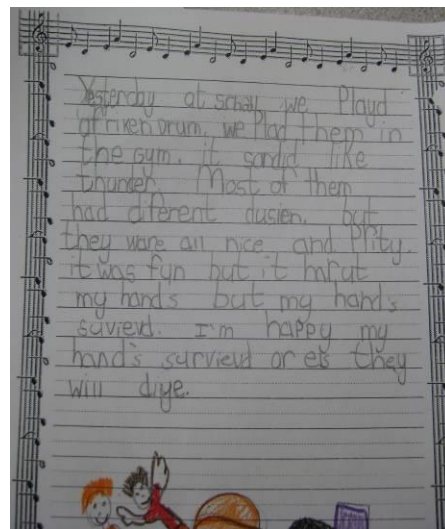 Yesterday at schay we Playd
africken Drum. we Plad them in
the gym. it sandid like
thunder. Most of them
had diferent dusien. but
they ware all nice and Prity.
it was fun but it hrut
my hands but my hand's
suvievd. I'm happy my
hand's survievd or els they
will diye.